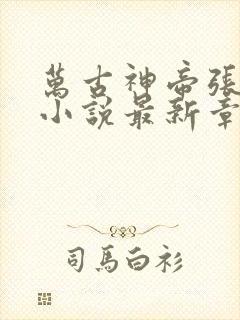 萬古神帝張
小說最新章
司馬白衫